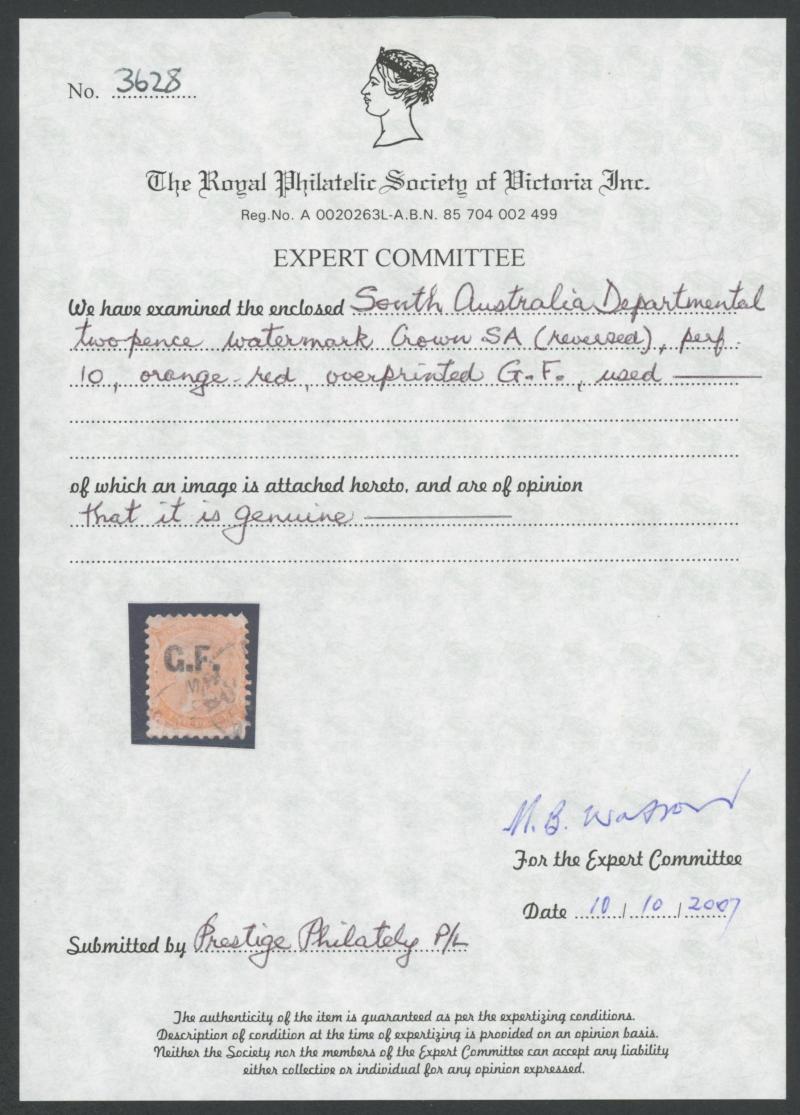 No. 3628
The Royal Philatelic Society of Victoria Inc.
Reg.No. A 0020263L-A.B.N. 85 704 002 499
EXPERT COMMITTEE
We have examined the enclosed South Australia Departmental
twopence watermark Crown SA (reversed), perf.
10, orange-red, overprinted G.F., used
of which an image is attached hereto, and are of opinion
that it is genuine
G.F.
M. B. Watson
For the Expert Committee
Date 10/10/2007
Submitted by Prestige Philately P/L
The authenticity of the item is guaranteed as per the expertizing conditions.
Description of condition at the time of expertizing is provided on an opinion basis.
Neither the Society nor the members of the Expert Committee can accept any liability
either collective or individual for any opinion expressed.